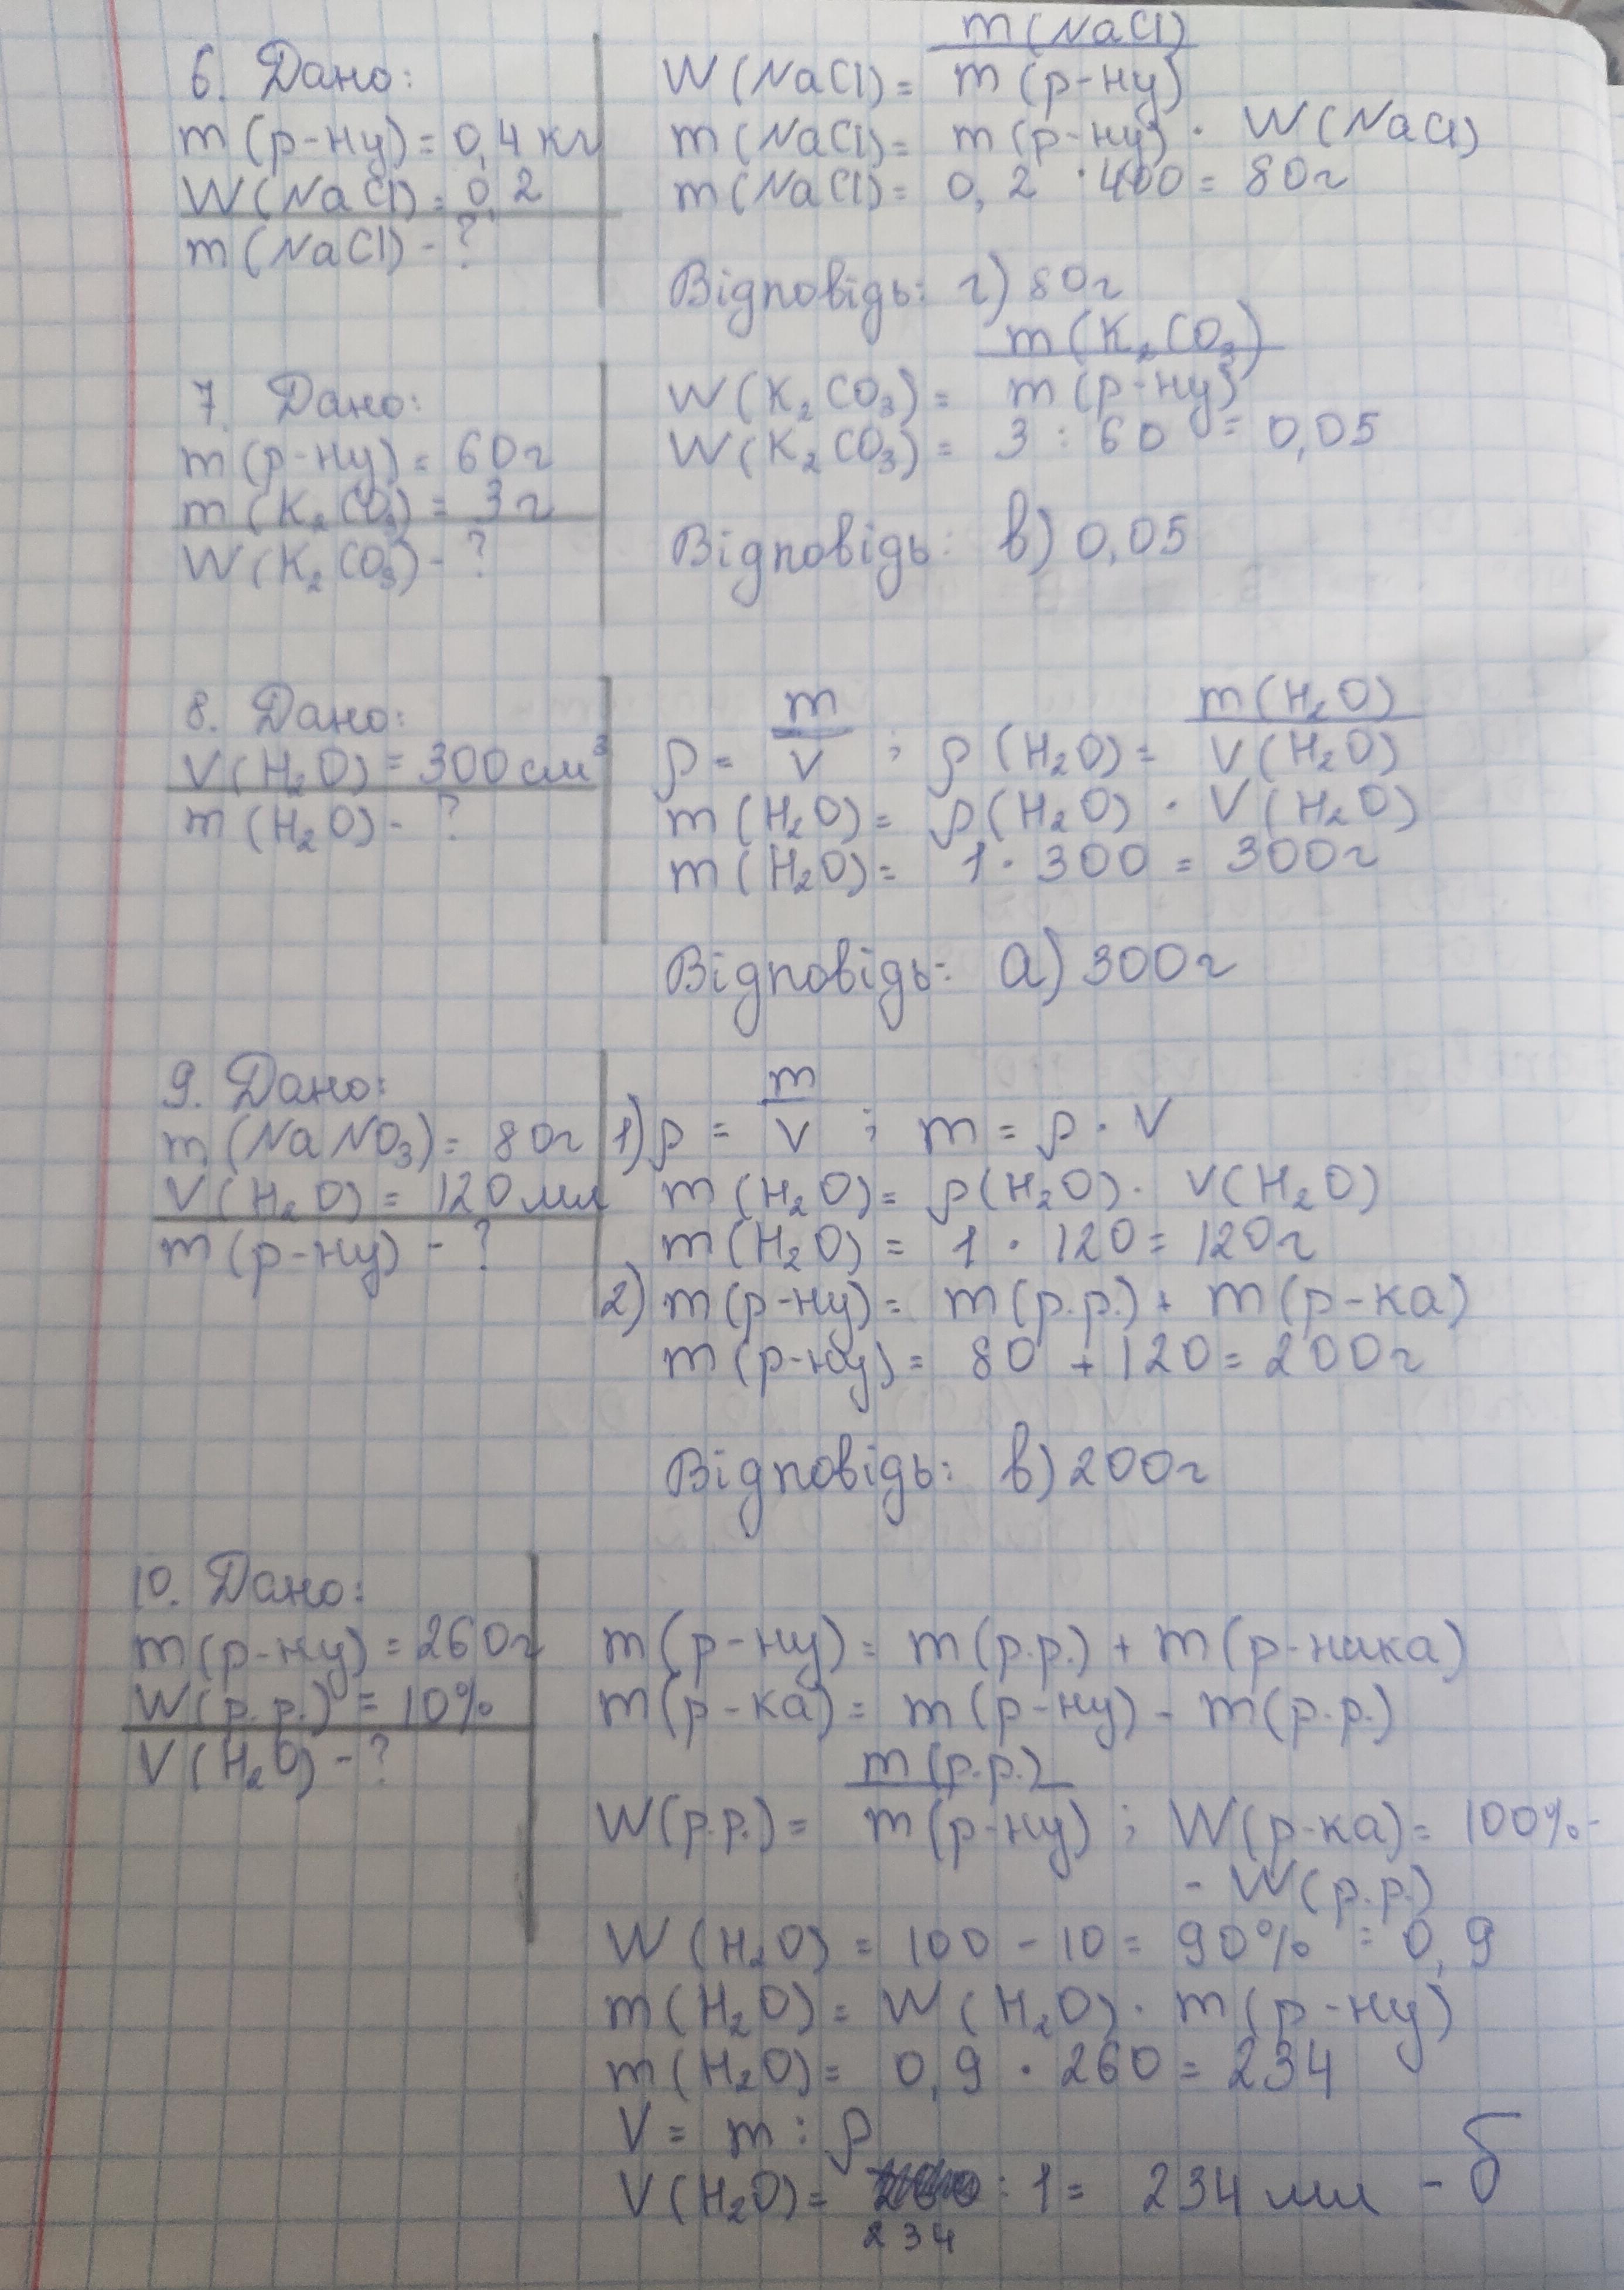 6. Дано:
m(р-ну) = 0,4 кг
W(NaCl) = 0,2
m(NaCl) - ?
m(NaCl)
W(NaCl) = m(р-ну)
m(NaCl) = m(р-ну) · W(NaCl)
m(NaCl) = 0,2 · 400 = 80г
Відповідь: г) 80г
7. Дано:
m(р-ну) = 60г
m(K₂CO₃) = 3г
W(K₂CO₃) - ?
m(K₂CO₃)
W(K₂CO₃) = m(р-ну)
W(K₂CO₃) = 3 : 60 = 0,05
Відповідь: в) 0,05
8. Дано:
V(H₂O) = 300 см³
m(H₂O) - ?
m m(H₂O)
ρ = V ; ρ(H₂O) = V(H₂O)
m(H₂O) = ρ(H₂O) · V(H₂O)
m(H₂O) = 1 · 300 = 300г
Відповідь: а) 300г
9. Дано:
m(NaNO₃) = 80г
V(H₂O) = 120 мл
m(р-ну) - ?
m
1) ρ = V ; m = ρ · V
m(H₂O) = ρ(H₂O) · V(H₂O)
m(H₂O) = 1 · 120 = 120г
2) m(р-ну) = m(р.р.) + m(р-ка)
m(р-ну) = 80 + 120 = 200г
Відповідь: в) 200г
10. Дано:
m(р-ну) = 260г
W(р.р.) = 10%
V(H₂O) - ?
m(р-ну) = m(р.р.) + m(р-ника)
m(р-ка) = m(р-ну) - m(р.р.)
m(р.р.)
W(р.р.) = m(р-ну) ; W(р-ка) = 100% -
- W(р.р.)
W(H₂O) = 100 - 10 = 90% = 0,9
m(H₂O) = W(H₂O) · m(р-ну)
m(H₂O) = 0,9 · 260 = 234
V = m : ρ
V(H₂O) = : 1 = 234 мл - б
234